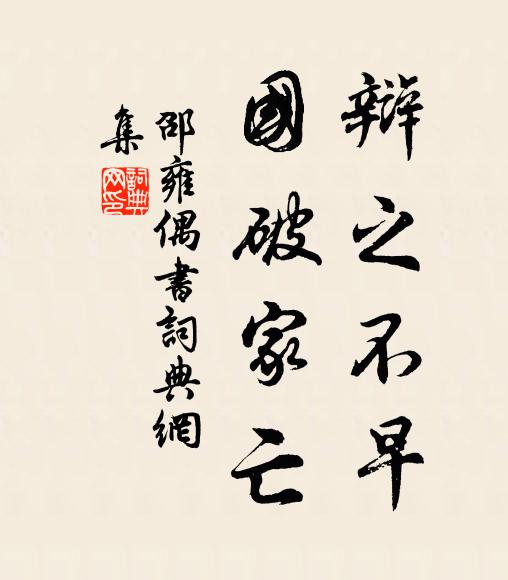 辯之不早
國破家亡
邵雍偶書詞典網
集
詞典
网印